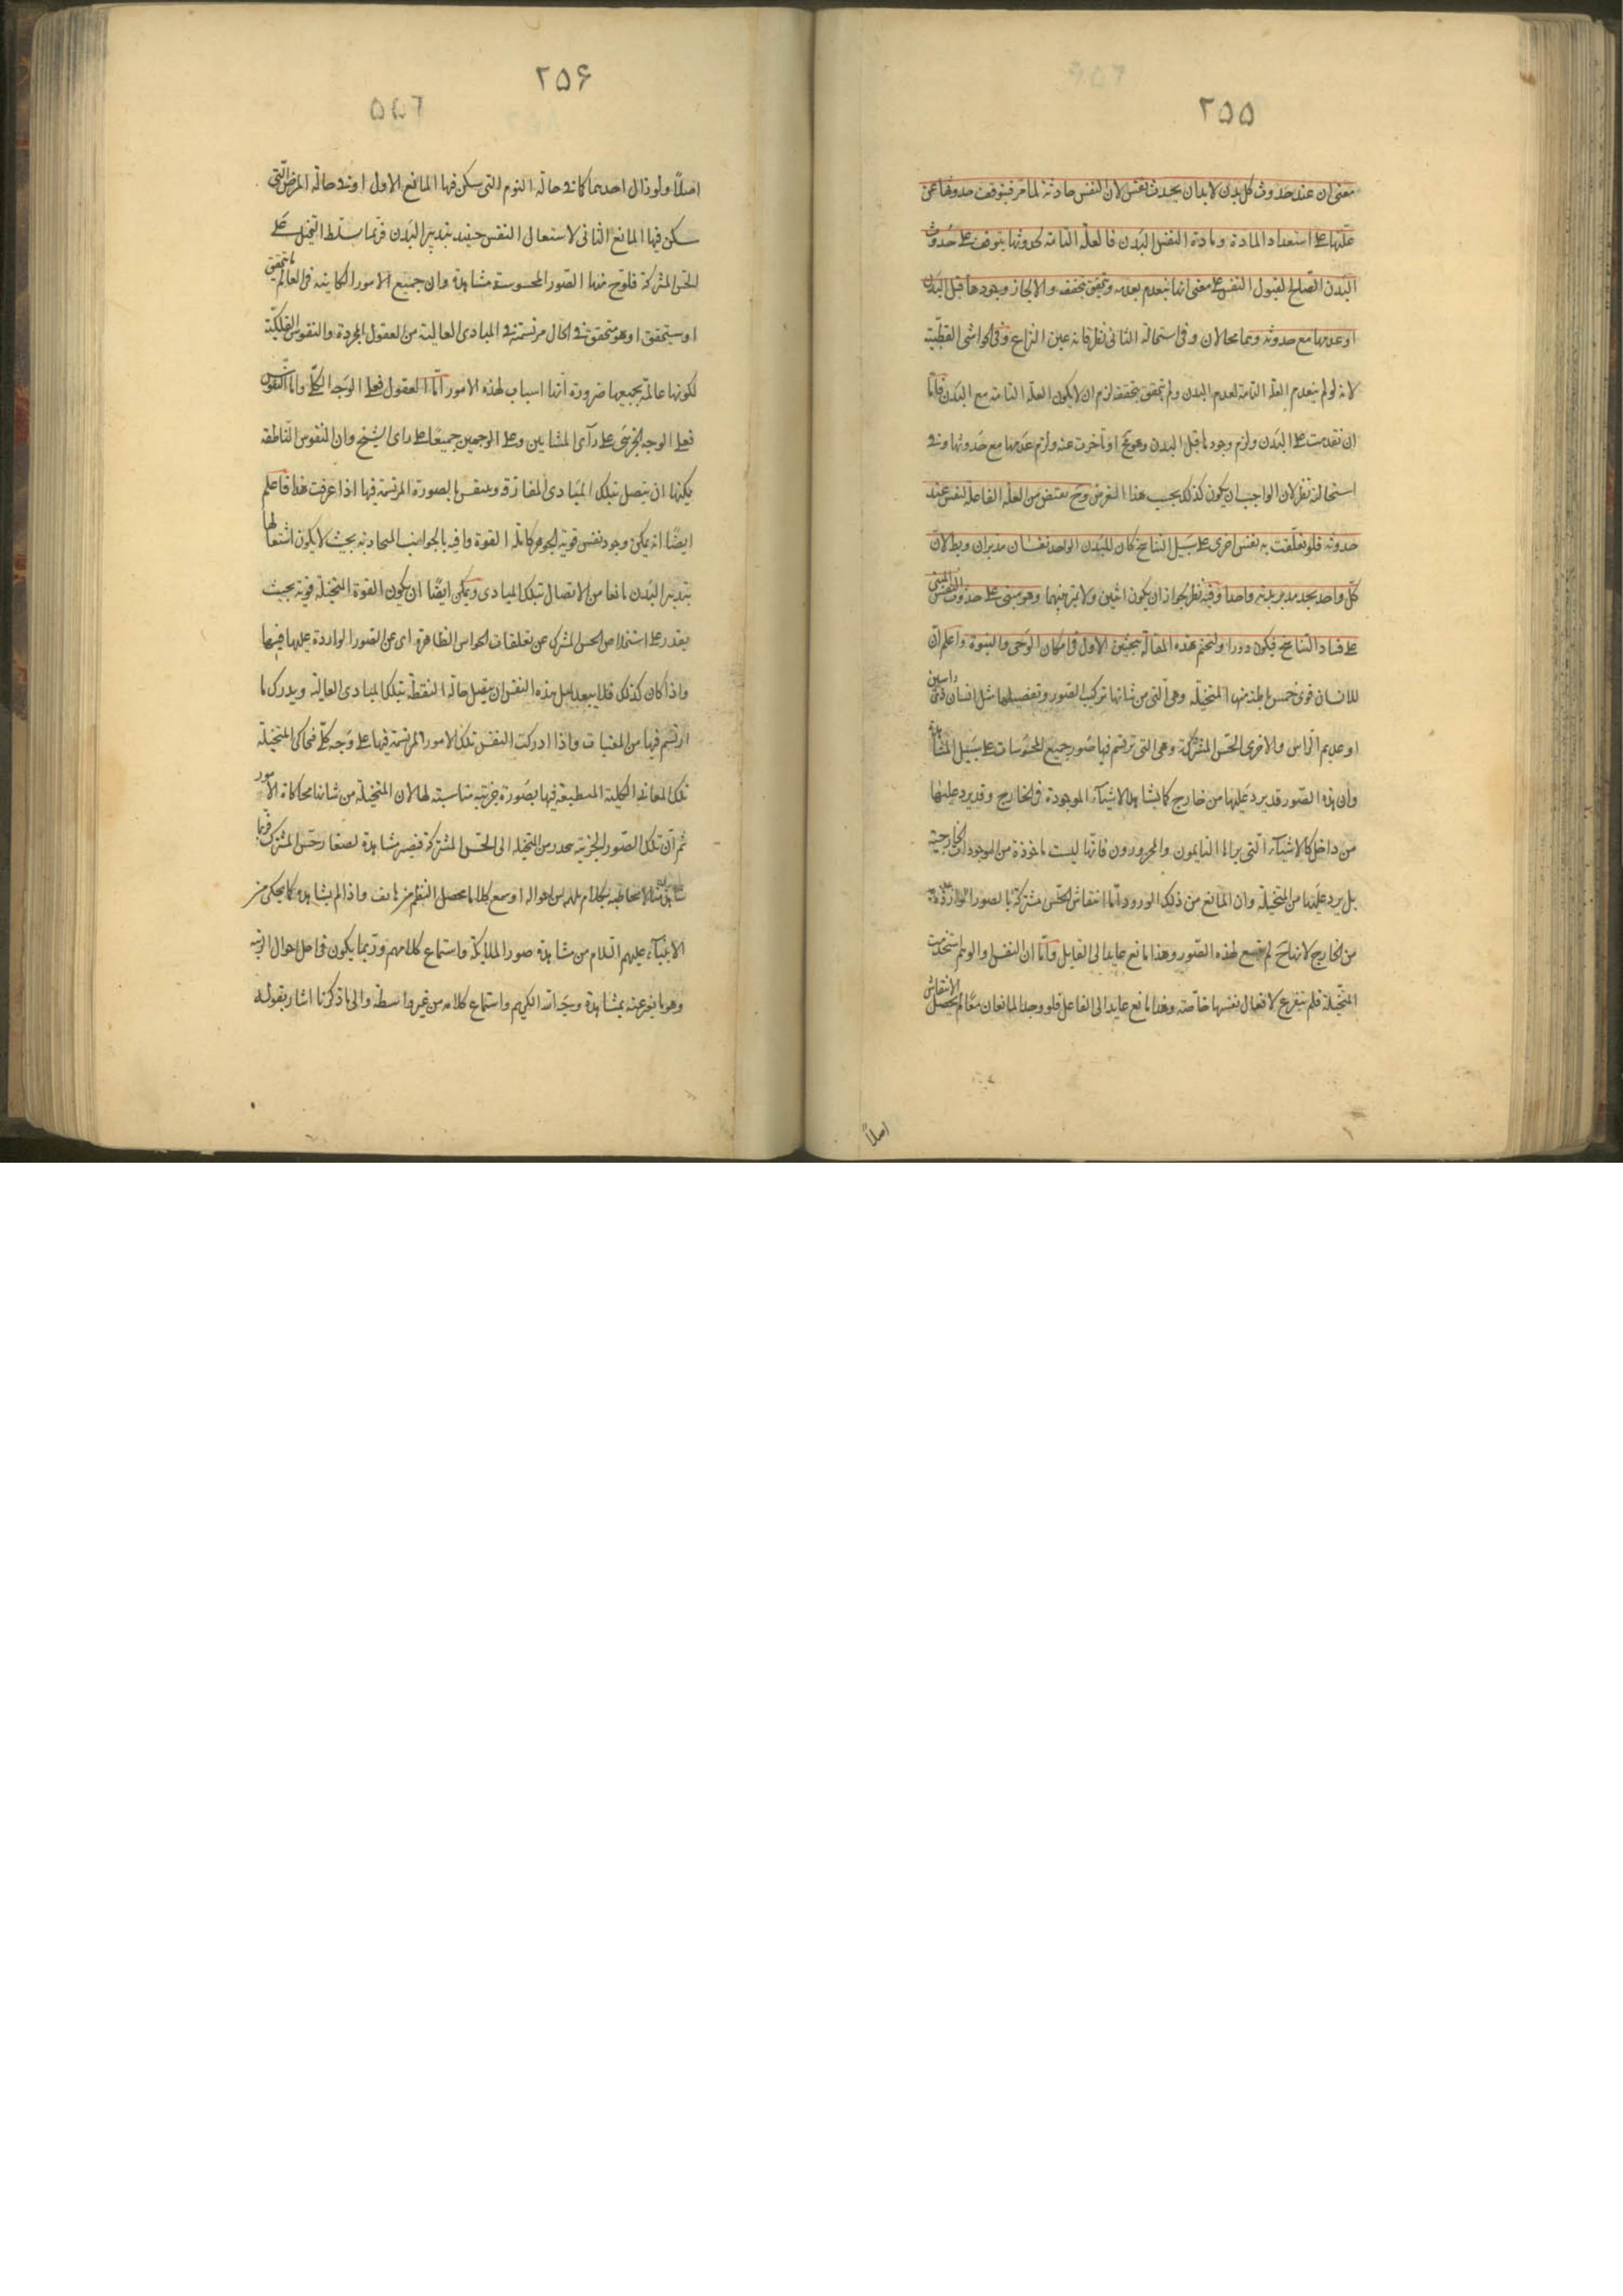 ٢٥٥
معنى ان عند حدوث كل بدن لابد ان يحدث نفس لان النفس حادثة لما مر فيتوقف حدوثها عن
علتها على استعداد المادة ومادة النفس البدن فالعلة التامة لحدوثها يتوقف على حدوث
البدن الصالح لقبول النفس على معنى انها ينعدم بعدمه وتحقق بتحققه والا لجاز وجودها قبل البدن
او عدمها مع حدوثه وهما محالان وفى استحالة الثانى نظر فانه عين النزاع وفى الحواشى القطبية
لانه لو لم ينعدم العلة التامة لعدم البدن ولم تتحقق بتحققه لزم ان لا يكون العلة التامة مع البدن فامّا
ان تقدمت على البدن ولزم وجودها قبل البدن وهو مح او تأخرت عنه ولزم عدمها مع حدوثها وفى
استحالته نظر لان الواجب ان يكون كذلك بحسب هذا الفرض وح يفيض من العلة الفاعلة لنفس عند
حدوثه فلو تعلقت به نفس اخرى على سبيل التناسخ كان للبدن الواحد نفسان مدبران وبطلان
كل واحد يجد مدبر بدنه واحدا وفيه نظر لجواز ان يكون اثنين ولا تميز بينهما وهو مبنى على حدوث النفس المبنى
على فساد التناسخ فيكون دورا ولنختم هذه المقالة ببحثين الاول فى امكان الوحى والنبوة واعلم ان
للانسان قوى خمس باطنة منها المتخيلة وهى التى من شانها تركيب الصور وتفصيلها مثل انسان ذى راسين
او عديم الراس والاخرى الحس المشتركة وهى التى ترتسم فيها صور جميع المحسوسات على سبيل المشاهدة
وان هذه الصور قد يرد عليها من خارج كما يشاهد الاشياء الموجودة فى الخارج وقد يرد عليها
من داخل كالاشياء التى يراها النايمون والمحرورون فانها ليست ماخوذة من الموجودات الخارجية
بل يرد عليها من المتخيلة وان المانع من ذلك الورود اما انتقاش الحس مشتركة بالصور الواردة عليه
من الخارج لانها ح لم تتسع لهذه الصور وهذا مانع عايد الى القابل واما ان النفس والوهم استخدمت
المتخيلة فلم يتفرغ لافعال نفسها خاصة وهذا مانع عايد الى الفاعل فلو وجد المانعان معا لم يحصل الانتقاش
اصلاً
٢٥۶
اصلاً ولو زال احدهما كما فى حالة النوم التى سكن فيها المانع الاول او فى حالة المرض التى
سكن فيها المانع الثانى لاستعمال النفس حينئذ بتدبير البدن فربما تسلط التخيل على
الحس المشتركة فلوح فيها الصور المحسوسة مشاهدة وان جميع الامور الكاينة فى العالم ما تحقق
او سيتحقق او هو متحقق فى الحال مرتسمة فى المبادى العالية من العقول المجردة والنفوس الفلكية
لكونها عالمة بجميعها ضرورة انها اسباب لهذه الامور اما العقول فعلى الوجه الكلى واما النفوس
فعلى الوجه الجزئى على رآى المشائين وعلى الوجهين جميعا على راى الشيخ وان النفوس الناطقة
يمكنها ان يتصل بتلك المبادى المفارقة وينتقش بالصورة المرتسمة فيها اذا عرفت هذا فاعلم
ايضا انه يمكن وجود نفس قوية الجوهر كاملة القوة وافية بالجوانب المتجاذبة بحيث لا يكون اشتغالها
بتدبير البدن مانعا من الاتصال بتلك المبادى ويمكن ايضا ان يكون القوة المتخيلة قوية بحيث
يقدر على استخلاص الحس المشترك عن تعلقات الحواس الظاهرة اى عن الصور الواردة عليها فيها
واذا كان كذلك فلا يبعد لمثل هذه النفس ان يتصل حالة اليقظة بتلك المبادى العالية ويدرك ما
ارتسم فيها من المغيبات واذا ادركت النفس تلك الامور المرتسمة فيها على وجه كلى فحاكى المتخيلة
تلك المعانى الكلية المنطبعة فيها بصورة جزئية مناسبة لها لان المتخيلة من شانها محاكاة الامور
ثم ان تلك الصور الجزئية ينحدر من المتخيلة الى الحس المشتركة فتصير مشاهدة لصفا رحس المشترك فربما
يخاطبه بكلام او سمع كلاما محصل النظم من هاتف واذا لم يشاهده كما يحكى من
الانبياء عليهم السلام من مشاهدة صور الملائكة واستماع كلامهم وربما يكون فى اجل احوال الزينة
وهو ما يعبر عنه بمشاهدة وجه الله الكريم واستماع كلامه من غير واسطة والى ما ذكرنا اشار بقوله